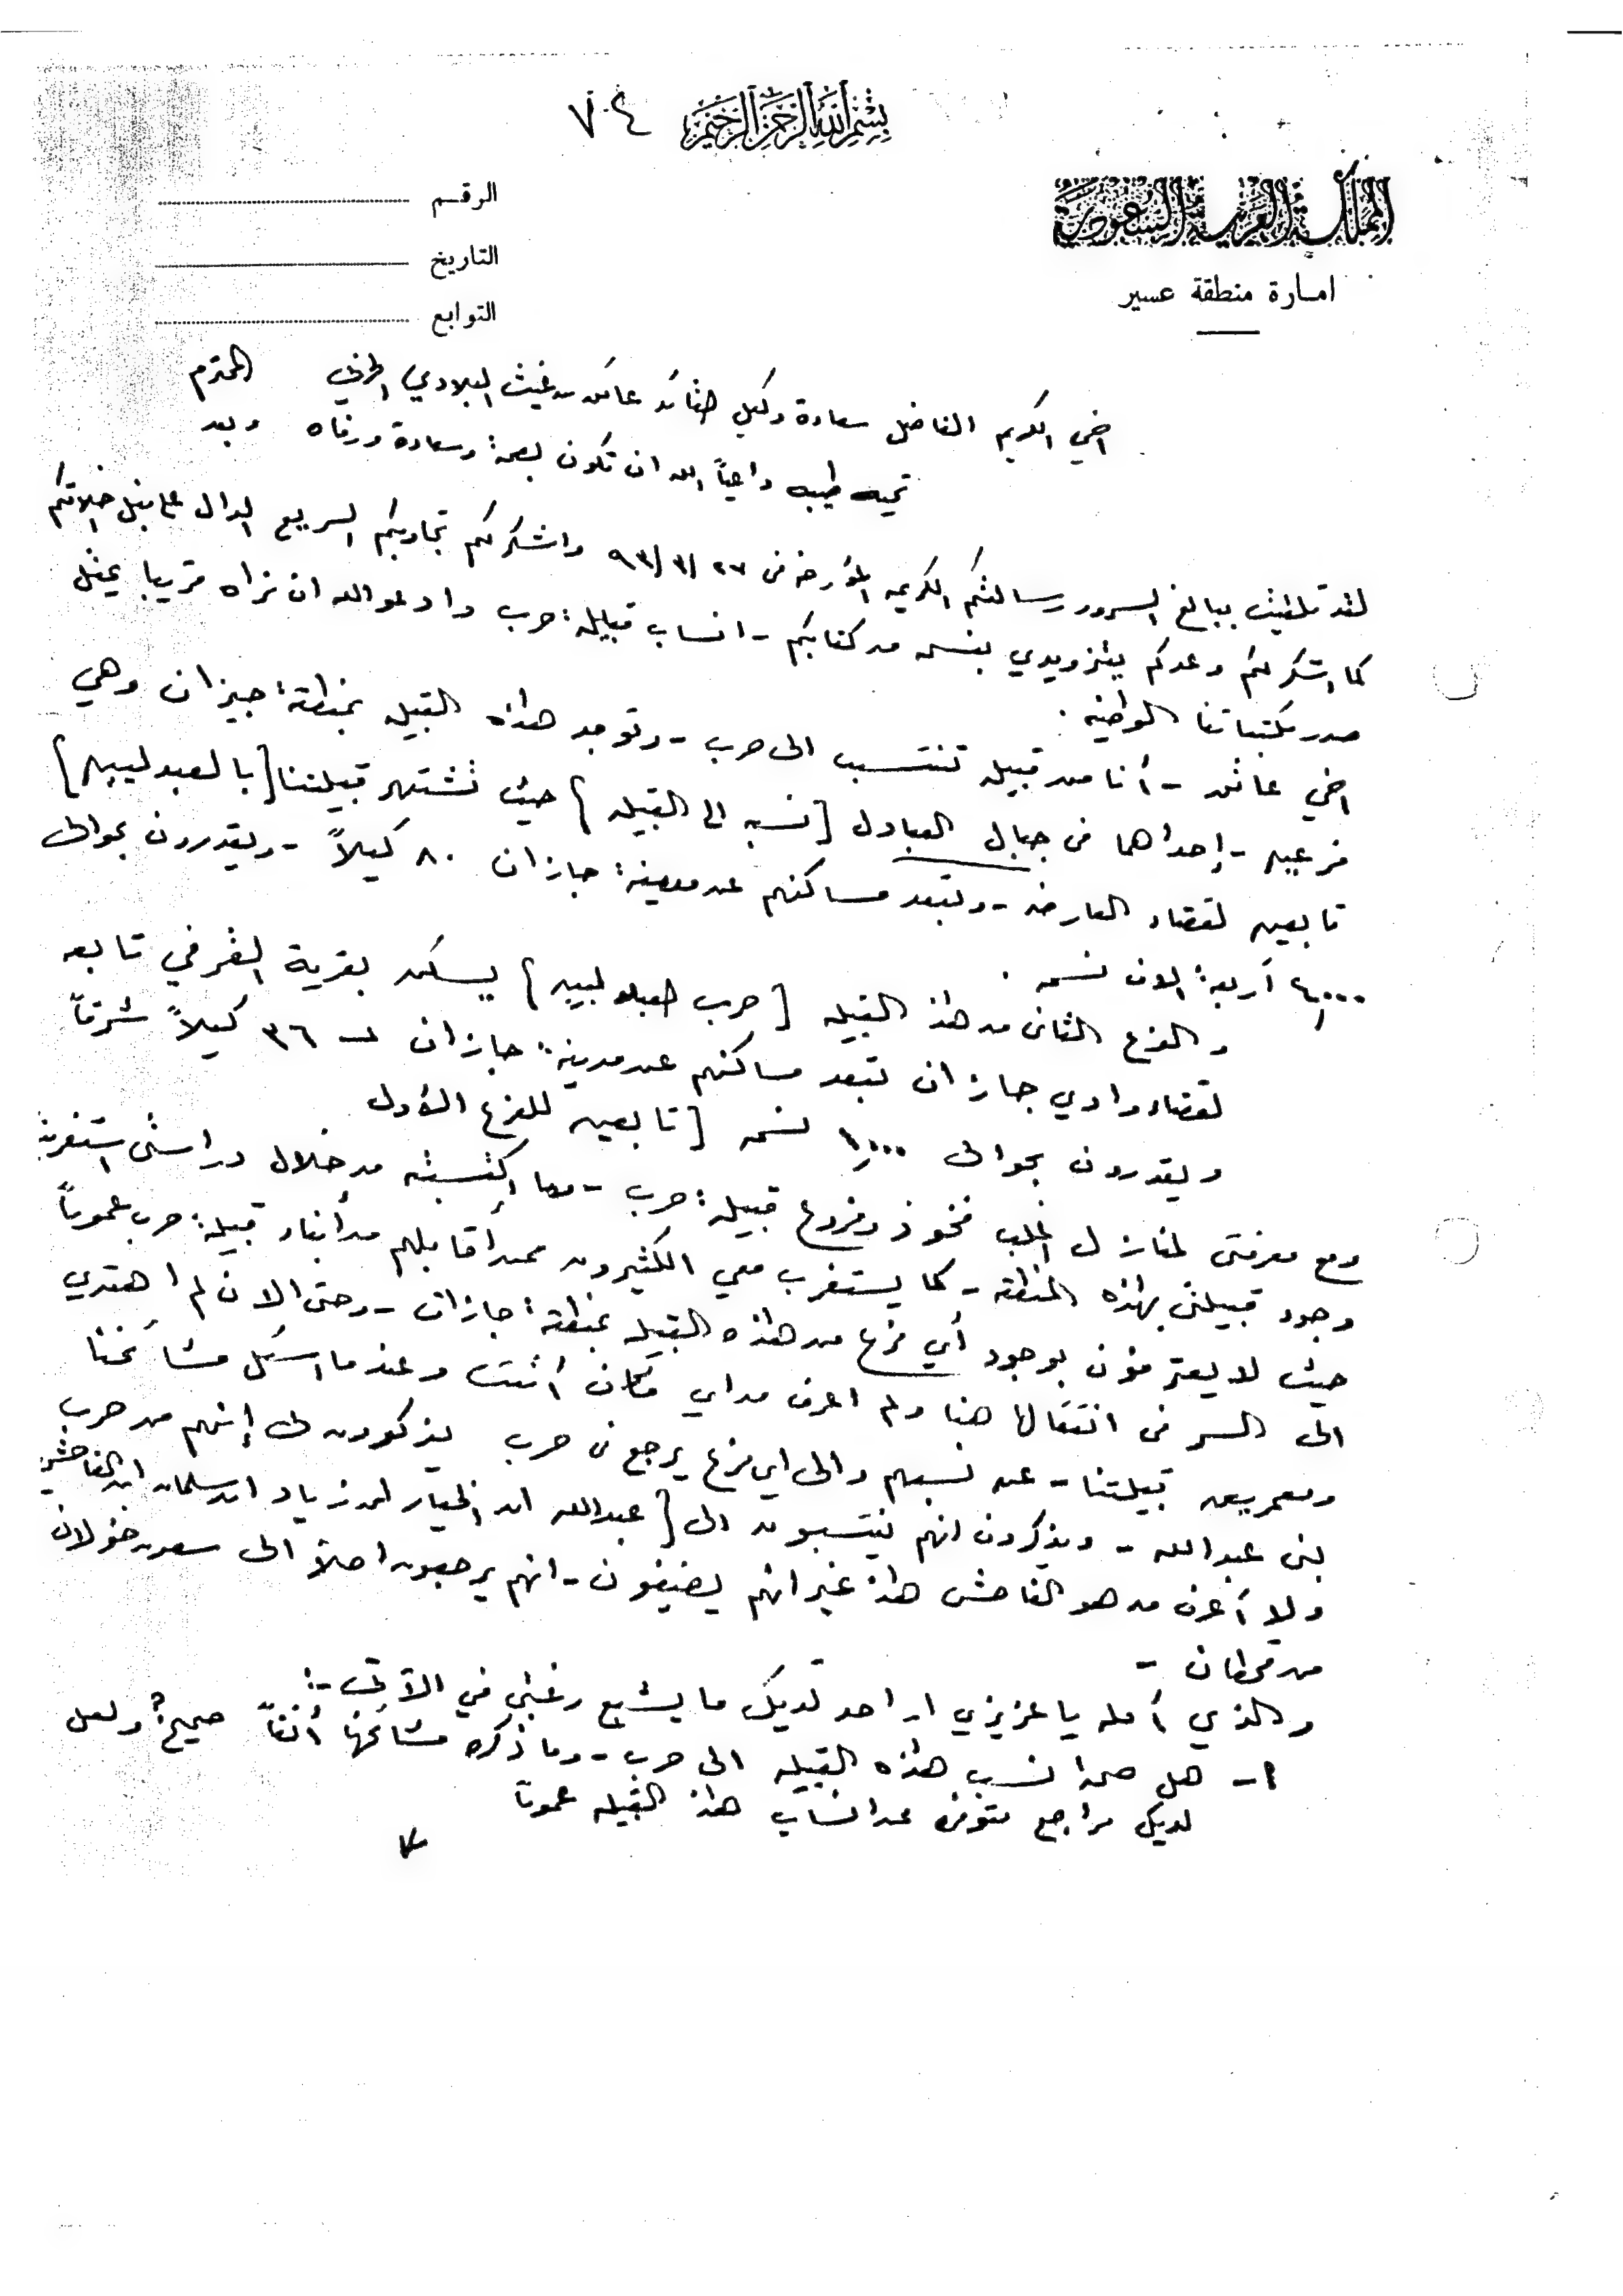 بسم الله الرحمن الرحيم
٧٠٤
المملكة العربية السعودية
امارة منطقة عسير
الرقم
التاريخ
التوابع
اخي الكريم الفاضل سعادة وكيل القائد عاتق بن غيث البلادي الحربي المحترم
تحيه طيبه داعياً الله ان تكون بصحة وسعادة ورفاه وبعد
لقد تلقيت ببالغ السرور رسالتكم الكريمه المؤرخه في ٢٧/٣/٩٣ واشكر لكم تجاوبكم السريع الدال على نبل اخلاقكم
كما اشكر لكم وعدكم بتزويدي بنسخه من كتابكم - انساب قبيلة حرب وادعو الله ان نراه قريبا يحتل
صدر مكتباتنا الوطنيه .
اخي عاتق - أنا من قبيله تنتسب الى حرب - وتوجد هذه القبيله بمنطقة جيزان وهي
فرعين - إحداهما في جبال العبادل [نسبه الى القبيله] حيث تشتهر قبيلتنا [بالعبدليين]
تابعين لقضاء العارضه - وتبعد مساكنهم عن مدينة جازان ٨٠ كيلاً - ويقدرون بحوالى
٤,٠٠٠ أربعة الاف نسمه .
والفرع الثاني من هذه القبيله [حرب العبدليين] يسكن بقرية الغرفي تابعه
لقضاء وادي جازان تبعد مساكنهم عن مدينة جازان ٣٦ كيلاً شرقاً
ويقدرون بحوالى ١,٠٠٠ نسمه [تابعين للفرع الأول
ومع معرفتي لمنازل اغلب فخوذ وفروع قبيلة حرب - مما إكتسبته من خلال دراستي استغرب
وجود قبيلتي بهذه المنطقه - كما يستغرب معي الكثيرون ممن أقابلهم من أبناء قبيلة حرب عموماً
حيث لا يعترفون بوجود أي فرع من هذه القبيله بمنطقة جازان - وحتى الان لم اهتدي
الى السر في انتقالها هنا ولم اعرف من اي مكان أتت وعندما اسئل مشائخنا
ومعمرين قبيلتنا - عن نسبهم والى اي فرع يرجع في حرب يذكرون لي إنهم من حرب
بني عبدالله - ويذكرون انهم ينتسبون الى [عبدالله ابن الخيار ابن زياد ابن سلمان ابن الفاحش]
ولا أعرف من هو الفاحش هذا غير انهم يضيفون - انهم يرجعون اصلاً الى سعد بن خولان
من قحطان -
والذي آمله يا عزيزي ان اجد لديك ما يشبع رغبتي في الآتي :-
١ - هل صحة نسب هذه القبيله الى حرب - وما ذكره مشائخها أنفاً صحيح؟ ولعل
لديك مراجع متوفره عن انساب هذه القبيله عموماً